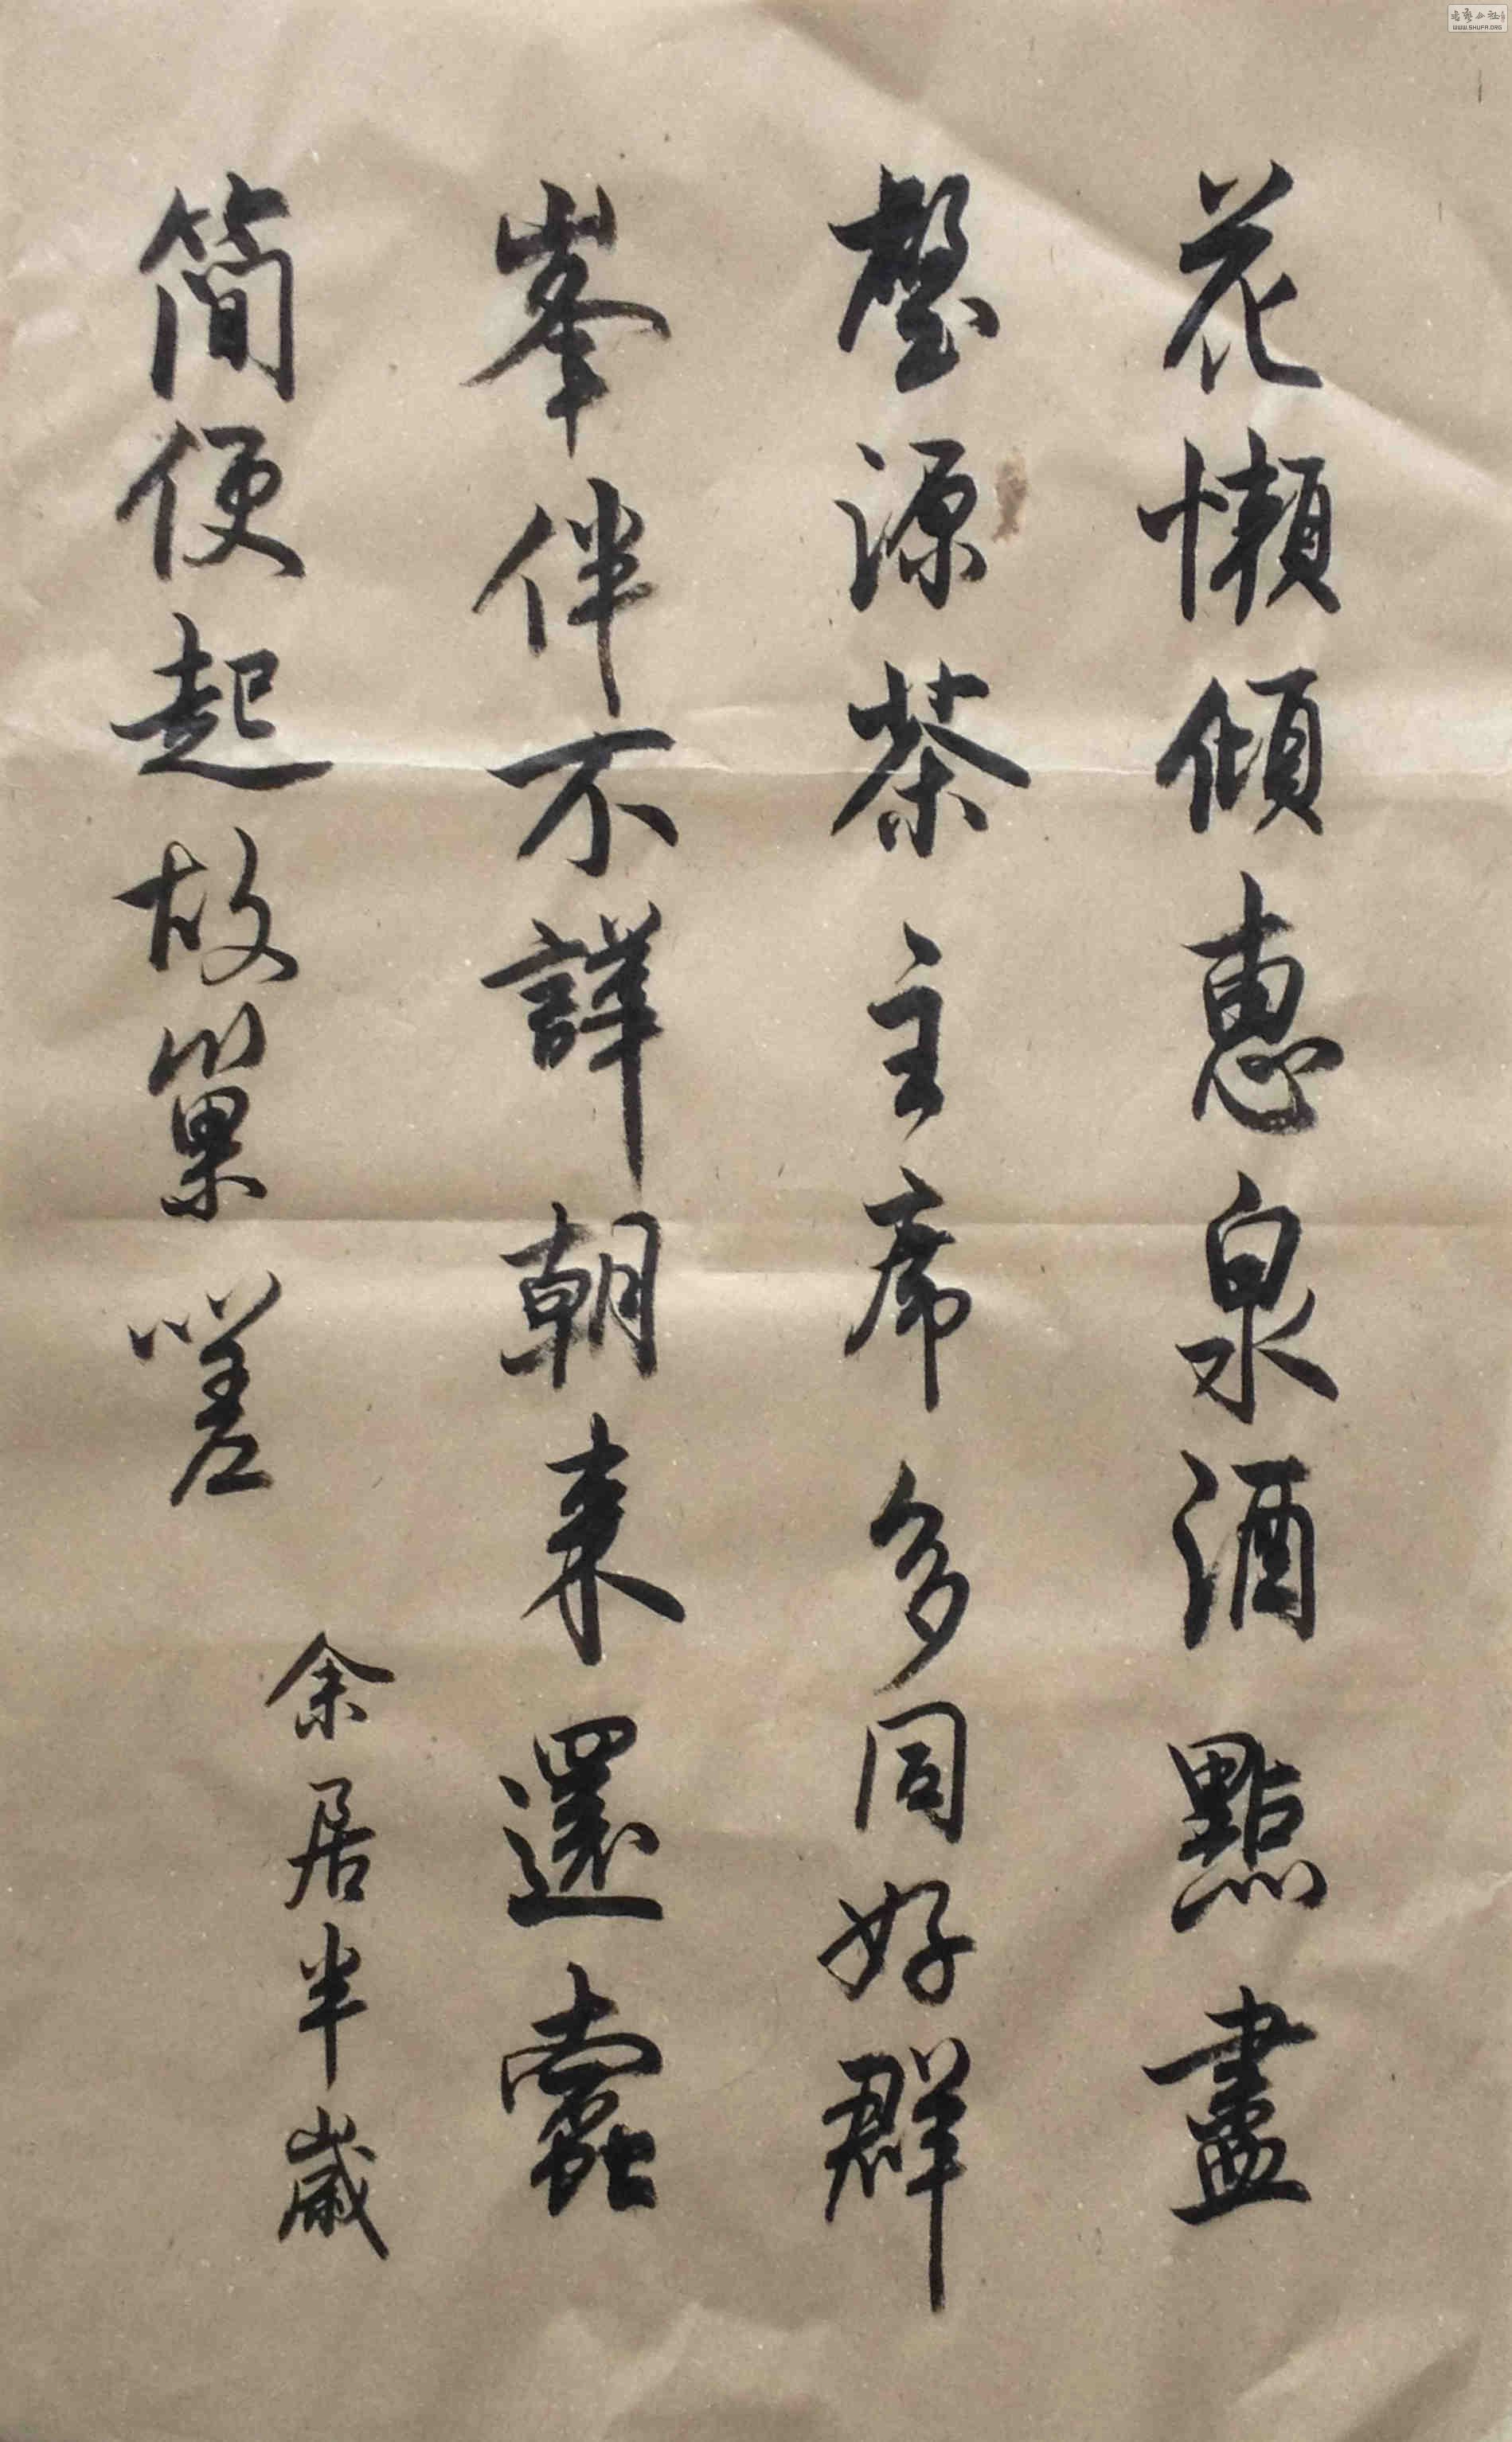 花懶傾惠泉酒點盡
壑源茶主席多同好群
峯伴不譁朝来還蠹
簡便起故巢嗟
余居半歲
WWW.SHUFA.ORG